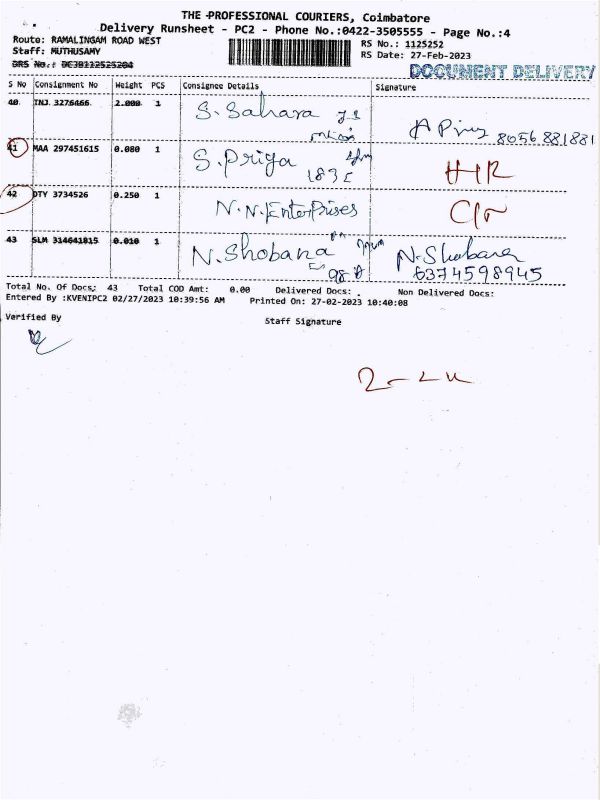 THE PROFESSIONAL COURIERS, Coimbatore
Delivery Runsheet - PC2 - Phone No.:0422-3505555 - Page No.:4
Route: RAMALINGAM ROAD WEST
RS No.: 1125252
Staff: MUTHUSAMY
RS Date: 27-Feb-2023
DRS No.:
DOCUMENT DELIVERY
S No Consignment No Weight PCS Consignee Details Signature
40 INJ 3276466 2.000 1 S. Sahara
A Priy 8056 881881
41 MAA 297451615 0.080 1 S. Priya
183
42 DTY 3734526 0.250 1 N.N. Enterprises
43 SLM 314641815 0.010 1 N. Shobana N. Shobana
98 6374598945
Total No. Of Docs: 43 Total COD Amt: 0.00 Delivered Docs: Non Delivered Docs:
Entered By :KVENIPC2 02/27/2023 10:39:56 AM Printed On: 27-02-2023 10:40:08
Verified By
Staff Signature